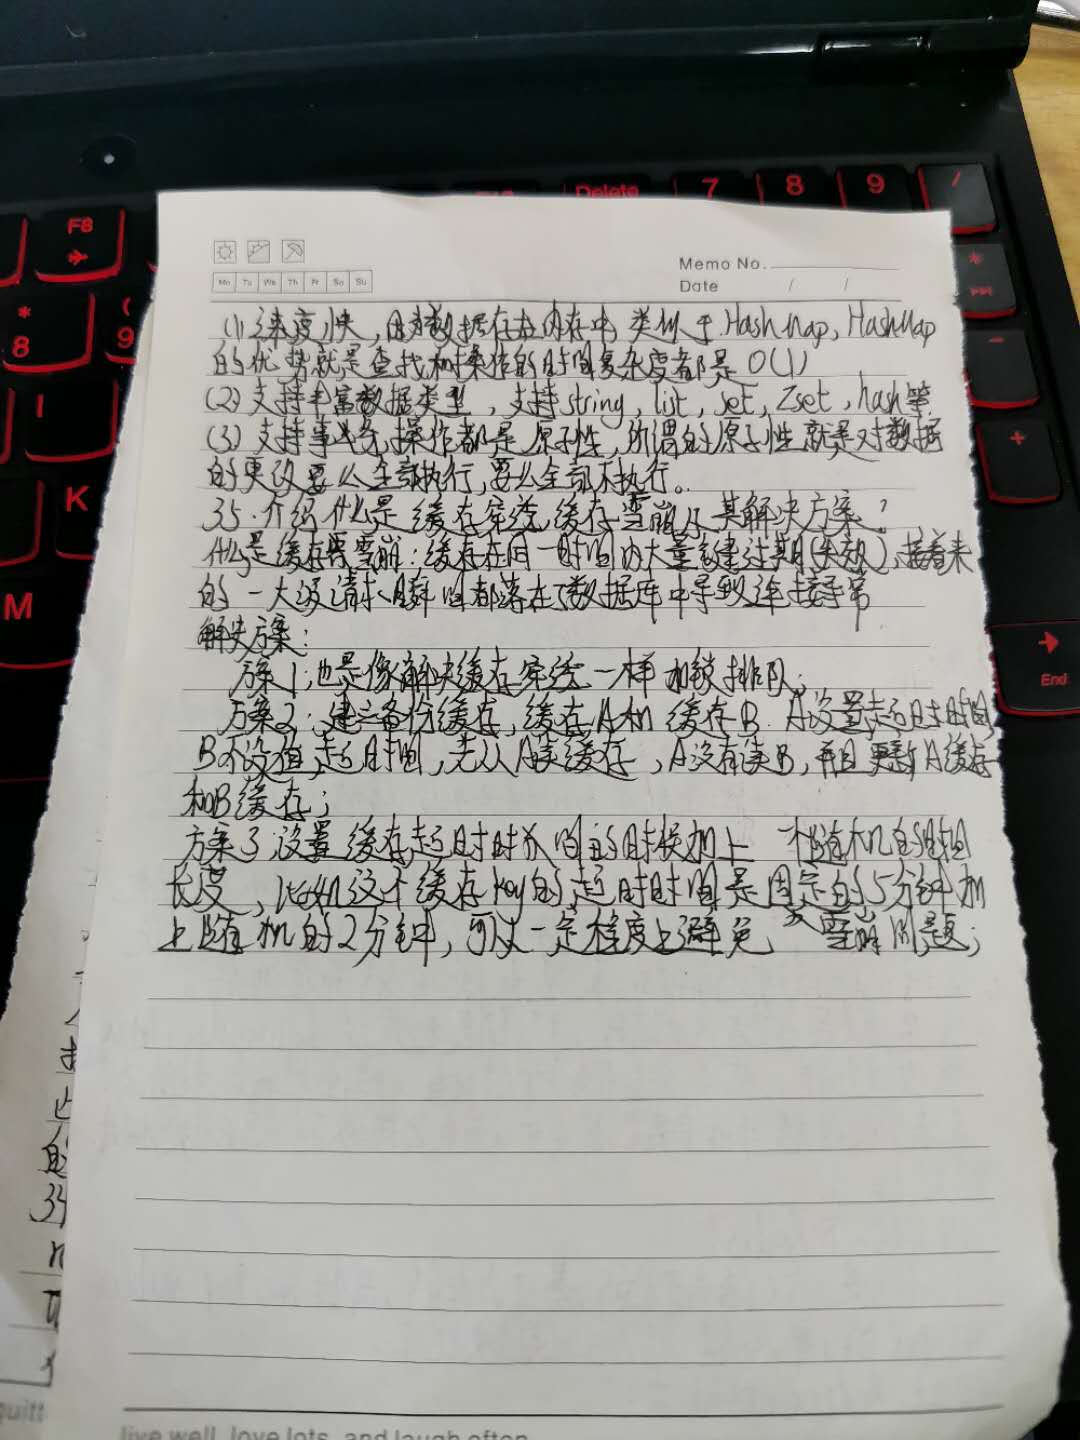 F8
Delete
7
8
9
/
*
8
(
9
I
K
M
+
End
Memo No.
Date / /
Mo Tu We Th Fr Sa Su
(1)速度快,因为数据存在内存中,类似于HashMap,HashMap
的优势就是查找和操作的时间复杂度都是O(1)
(2)支持丰富数据类型,支持string,list,set,Zset,hash等
(3)支持事务,操作都是原子性,所谓的原子性就是对数据
的更改要么全部执行,要么全部不执行。
35.介绍什么是缓存穿透,缓存雪崩及其解决方案?
什么是缓存雪崩:缓存在同一时间内大量键过期(失效),接着来
的一大波请求瞬间都落在了数据库中导致连接异常
解决方案:
方案1;也是像解决缓存穿透一样加锁排队;
方案2;建立备份缓存,缓存A和缓存B.A设置超时时间,
B不设值超时间,先从A读缓存,A没有读B,并且更新A缓存
和B缓存;
方案3;设置缓存超时时间的时候加上一个随机的时间
长度,比如这个缓存key的超时时间是固定的5分钟加
上随机的2分钟,可从一定程度上避免雪崩问题;
live well, love lots, and laugh often